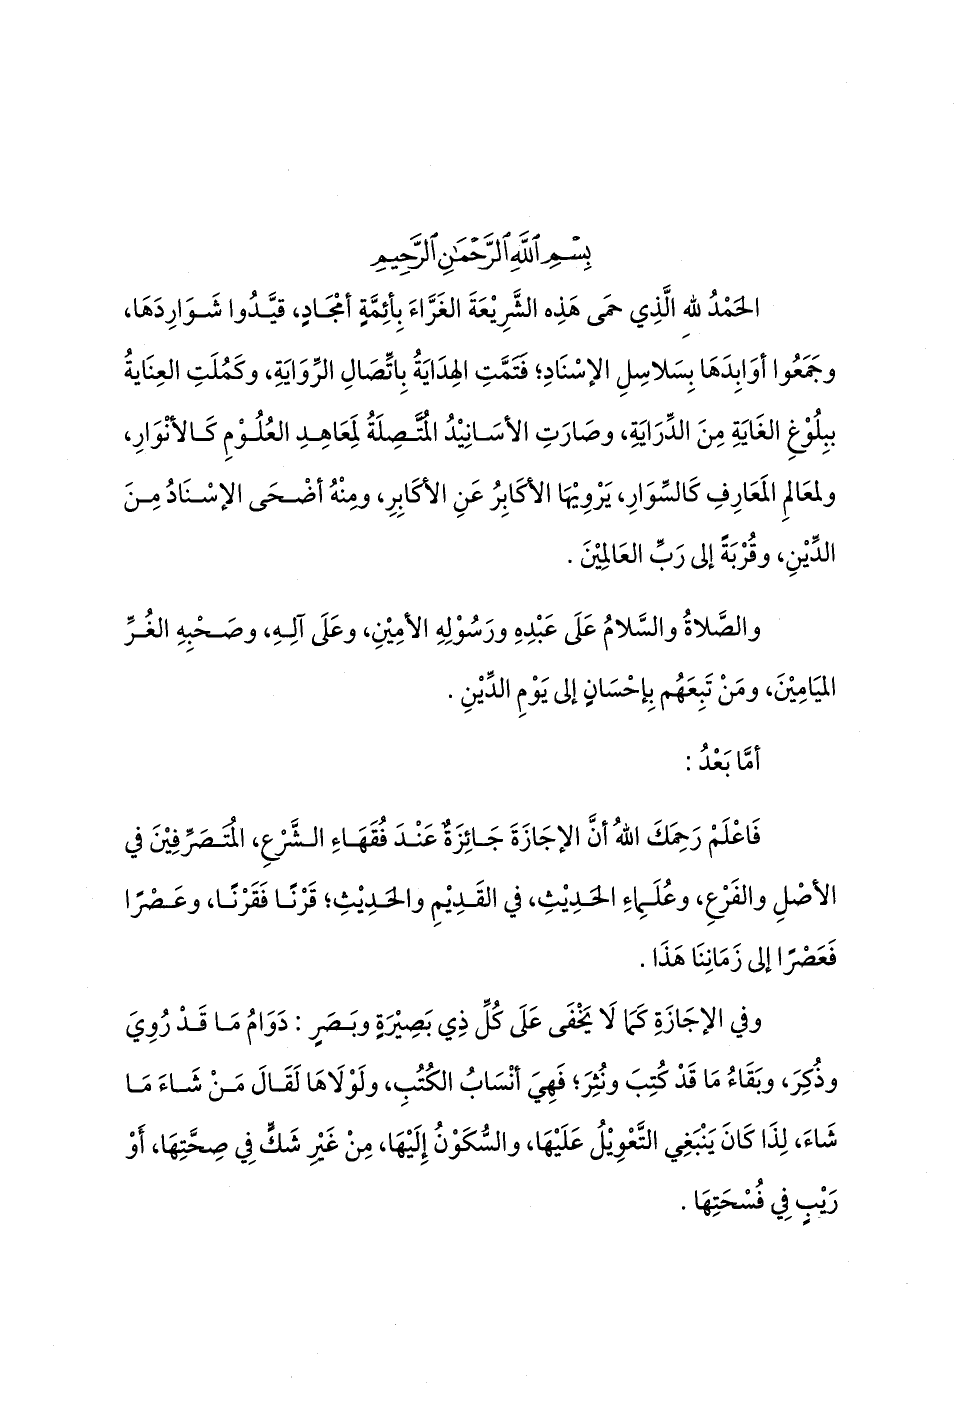 بِسْمِ ٱللَّهِ ٱلرَّحْمَٰنِ ٱلرَّحِيمِ
الحَمْدُ للهِ الَّذِي حَمَى هَذِه الشَّرِيْعَةَ الغَرَّاءَ بِأئِمَّةٍ أمْجَادٍ، قيَّدُوا شَوَارِدَهَا،
وجَمَعُوا أوَابِدَهَا بِسَلاسِلِ الإسْنَادِ؛ فَتَمَّتِ الهِدَايَةُ بِاتِّصَالِ الرِّوَايَةِ، وكَمُلَتِ العِنَايَةُ
بِبلُوْغِ الغَايَةِ مِنَ الدِّرَايَةِ، وصَارَتِ الأسَانِيْدُ المُتَّصِلَةُ لمَعَاهِدِ العُلُوْمِ كَالأنْوَارِ،
ولمعَالمِ المَعَارِفِ كَالسِّوَارِ، يَرْوِيْهَا الأكَابِرُ عَنِ الأكَابِرِ، ومِنْهُ أضْحَى الإسْنَادُ مِنَ
الدِّيْنِ، وقُرْبَةً إلى رَبِّ العَالمِيْنَ .
والصَّلاةُ والسَّلامُ عَلَى عَبْدِهِ ورَسُوْلِهِ الأمِيْنِ، وعَلَى آلِهِ، وصَحْبِهِ الغُرِّ
الميَامِيْنَ، ومَنْ تَبِعَهُم بِإحْسَانٍ إلى يَوْمِ الدِّيْنِ .
أمَّا بَعْدُ :
فَاعْلَمْ رَحِمَكَ اللهُ أنَّ الإجَازَةَ جَائِزَةٌ عَنْدَ فُقَهَاءِ الشَّرْعِ، المُتَصَرِّفِيْنَ في
الأصْلِ والفَرْعِ، وعُلَمِاءِ الحَدِيْثِ، في القَدِيْمِ والحَدِيْثِ؛ قَرْنًا فَقَرْنًا، وعَصْرًا
فَعَصْرًا إلى زَمَانِنَا هَذَا .
وفي الإجَازَةِ كَمَا لَا يَخْفَى عَلَى كُلِّ ذِي بَصِيْرَةٍ وبَصَرٍ : دَوَامُ مَا قَدْ رُوِيَ
وذُكِرَ، وبَقَاءُ مَا قَدْ كُتِبَ ونُثِرَ؛ فَهِيَ أنْسَابُ الكُتُبِ، ولَوْلَاهَا لَقَالَ مَنْ شَاءَ مَا
شَاءَ، لِذَا كَانَ يَنْبَغِي التَّعْوِيْلُ عَلَيْهَا، والسُّكَوْنُ إلَيْهَا، مِنْ غَيْرِ شَكٍّ فِي صِحَّتِهَا، أَوْ
رَيْبٍ فِي فُسْحَتِهَا .